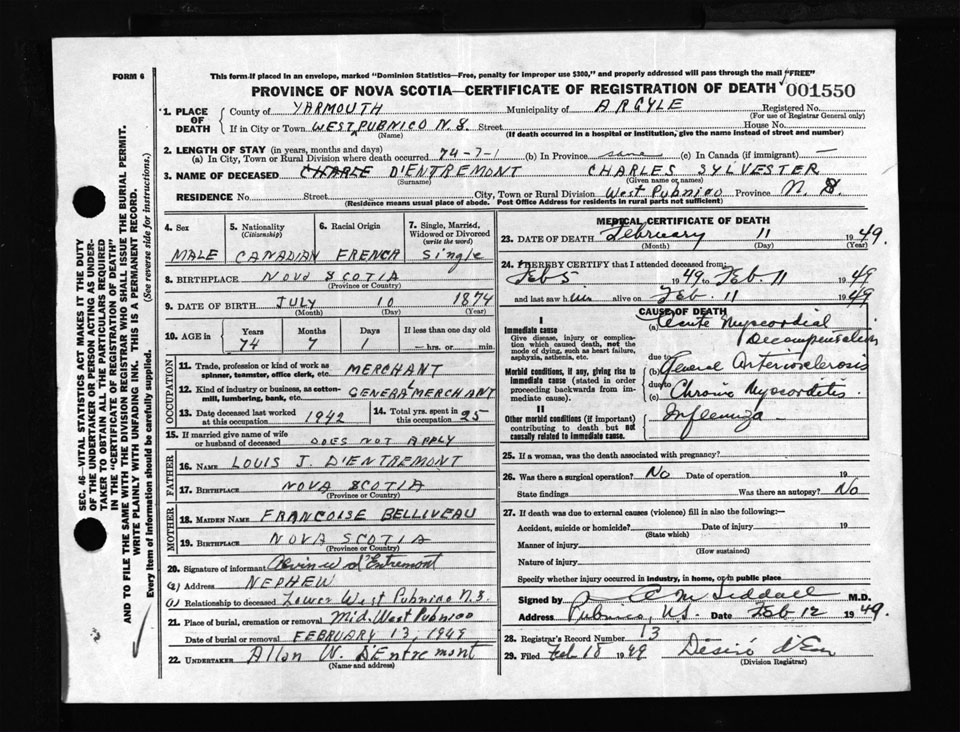 FORM 6
This form if placed in an envelope, marked "Dominion Statistics—Free, penalty for improper use $300," and properly addressed will pass through the mail "FREE"
PROVINCE OF NOVA SCOTIA—CERTIFICATE OF REGISTRATION OF DEATH 001550
1. PLACE OF DEATH
County of YARMOUTH Municipality of ARGYLE Registered No.
(For use of Registrar General only)
If in City or Town WEST PUBNICO N.S. Street House No.
(Name) (If death occurred in a hospital or institution, give the name instead of street and number)
2. LENGTH OF STAY (in years, months and days)
(a) In City, Town or Rural Division where death occurred 74-7-1 (b) In Province same (c) In Canada (if immigrant) —
3. NAME OF DECEASED CHARLE D'ENTREMONT CHARLES SYLVESTER
(Surname) (Given name or names)
RESIDENCE No. Street City, Town or Rural Division West Pubnico Province N.S.
(Residence means usual place of abode. Post Office Address for residents in rural parts not sufficient)
4. Sex 5. Nationality (Citizenship) 6. Racial Origin 7. Single, Married, Widowed or Divorced (write the word)
MALE CANADIAN FRENCH Single
8. BIRTHPLACE NOVA SCOTIA
(Province or Country)
9. DATE OF BIRTH JULY 10 1874
(Month) (Day) (Year)
10. AGE in Years Months Days If less than one day old
74 7 1 — hrs. or min.
OCCUPATION
11. Trade, profession or kind of work as spinner, teamster, office clerk, etc. MERCHANT
12. Kind of industry or business, as cotton-mill, lumbering, bank, etc. GENERAL MERCHANT
13. Date deceased last worked at this occupation 1942 14. Total yrs. spent in this occupation 25
15. If married give name of wife or husband of deceased DOES NOT APPLY
FATHER
16. NAME LOUIS J. D'ENTREMONT
17. BIRTHPLACE NOVA SCOTIA
(Province or Country)
MOTHER
18. MAIDEN NAME FRANCOISE BELLIVEAU
19. BIRTHPLACE NOVA SCOTIA
(Province or Country)
20. Signature of informant d'Entremont
(2) Address NEPHEW
(1) Relationship to deceased Lower West Pubnico N.S.
21. Place of burial, cremation or removal Mid. West Pubnico
Date of burial or removal FEBRUARY 13, 1949
22. UNDERTAKER Allan W. D'Entremont
(Name and address)
MEDICAL CERTIFICATE OF DEATH
23. DATE OF DEATH February 11 1949.
(Month) (Day) (Year)
24. I HEREBY CERTIFY that I attended deceased from:
Feb 5 1949 to Feb. 11 1949
and last saw him alive on Feb. 11 1949
CAUSE OF DEATH
I
Immediate cause
Give disease, injury or complication which caused death, not the mode of dying, such as heart failure, asphyxia, asthenia, etc.
(a) Acute Myocordial Decompensation
due to
Morbid conditions, if any, giving rise to immediate cause (stated in order proceeding backwards from immediate cause).
(b) General Arteriosclerosis
due to
(c) Chronic Myocorditis.
II
Other morbid conditions (if important) contributing to death but not causally related to immediate cause.
Influenza
25. If a woman, was the death associated with pregnancy?
26. Was there a surgical operation? No Date of operation 19
State findings Was there an autopsy? No
27. If death was due to external causes (violence) fill in also the following:—
Accident, suicide or homicide? Date of injury 19
(State which)
Manner of injury
(How sustained)
Nature of injury
Specify whether injury occurred in industry, in home, or in public place
Signed by M Siddall M.D.
Address Pubnico, N.S. Date Feb 12 1949.
28. Registrar's Record Number 13
29. Filed Feb 15 1949 Désiré d'En
(Division Registrar)
SEC. 46—VITAL STATISTICS ACT MAKES IT THE DUTY
OF THE UNDERTAKER OR PERSON ACTING AS UNDER-
TAKER TO OBTAIN ALL THE PARTICULARS REQUIRED
IN THE "CERTIFICATE OF REGISTRATION OF DEATH"
AND TO FILE THE SAME WITH THE DIVISION REGISTRAR WHO SHALL ISSUE THE BURIAL PERMIT.
WRITE PLAINLY WITH UNFADING INK. THIS IS A PERMANENT RECORD.
Every item of Information should be carefully supplied. (See reverse side for instructions.)